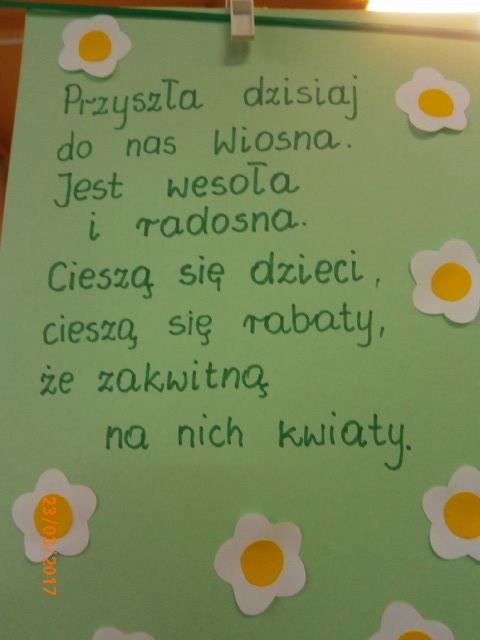 Przyszła dzisiaj
do nas Wiosna.
Jest wesoła
i radosna.
Cieszą się dzieci,
cieszą się rabaty,
że zakwitną
na nich kwiaty.
23/03/2017